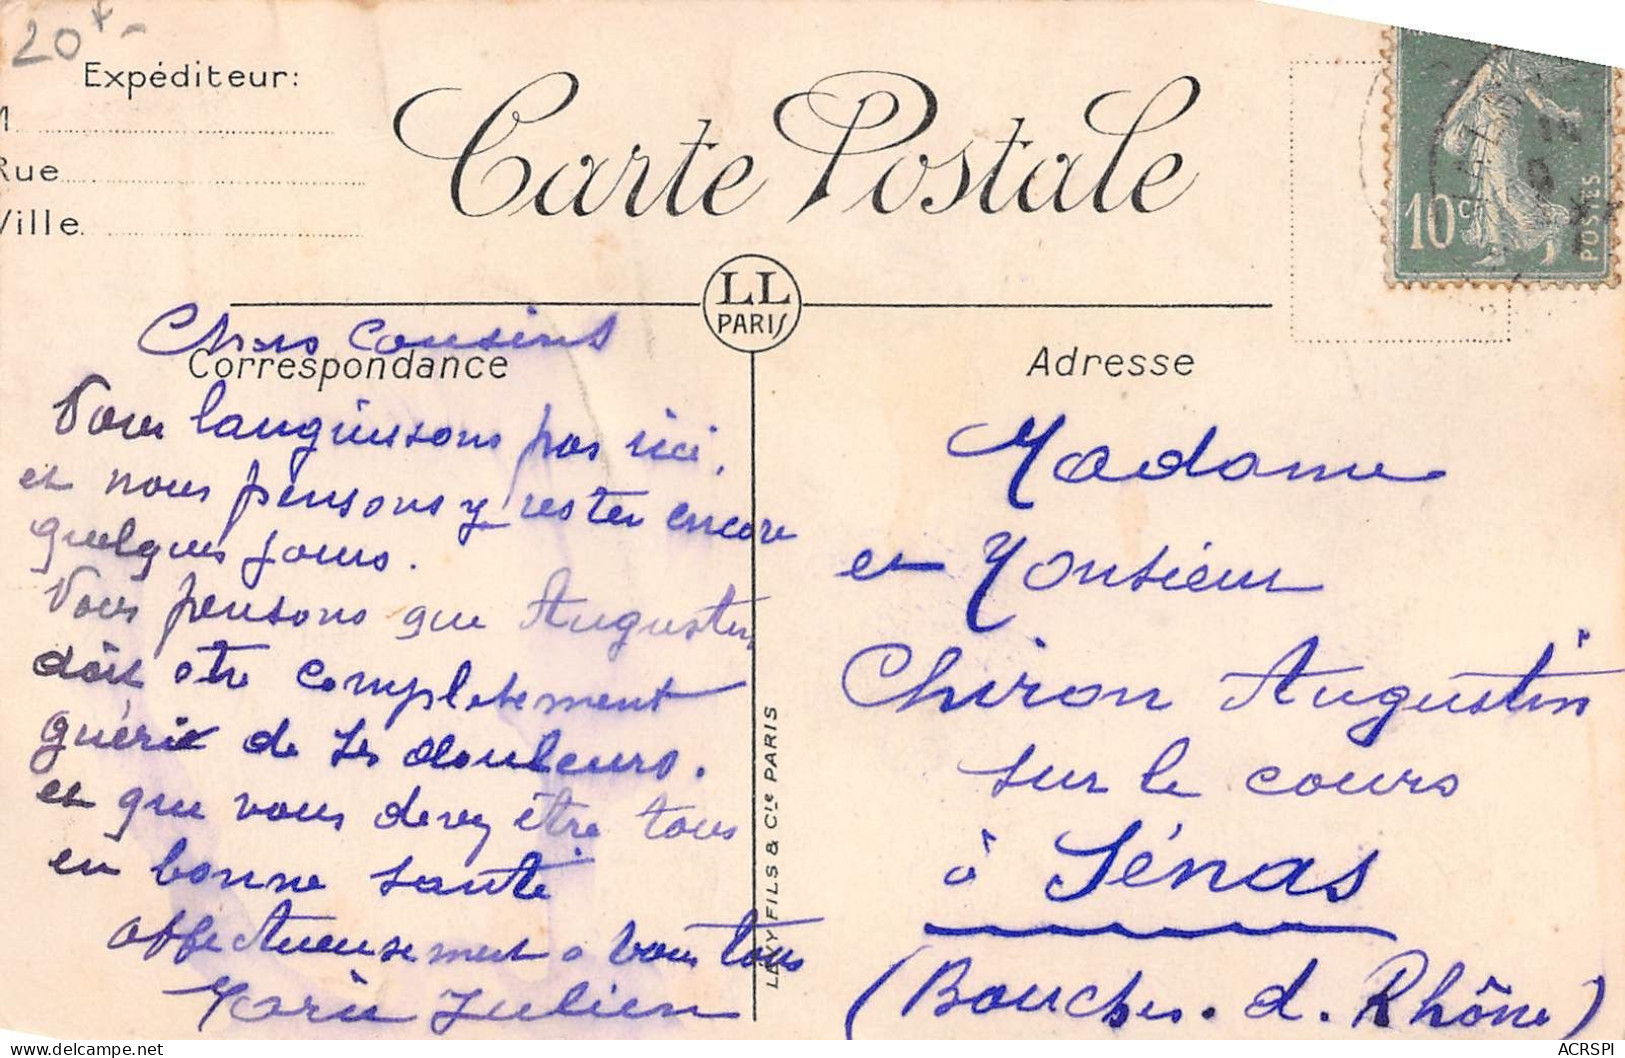 20 x -
Expéditeur:
M
Rue
Ville
Carte Postale
10c
POSTES
LL
PARIS
Chers Cousins
Correspondance
Nous languissons pas ici,
et nous pensons y rester encore
quelques jours.
Nous pensons que Augustin
doit être complètement
guéri de ses douleurs.
et que vous devez être tous
en bonne santé
affectueusement a vous tous
Marie Julien
LEVY FILS & Cie PARIS
Adresse
Madame
et Monsieur
Chiron Augustin
sur le cours
à Sénas
(Bouches. d. Rhône)
ACRSPI